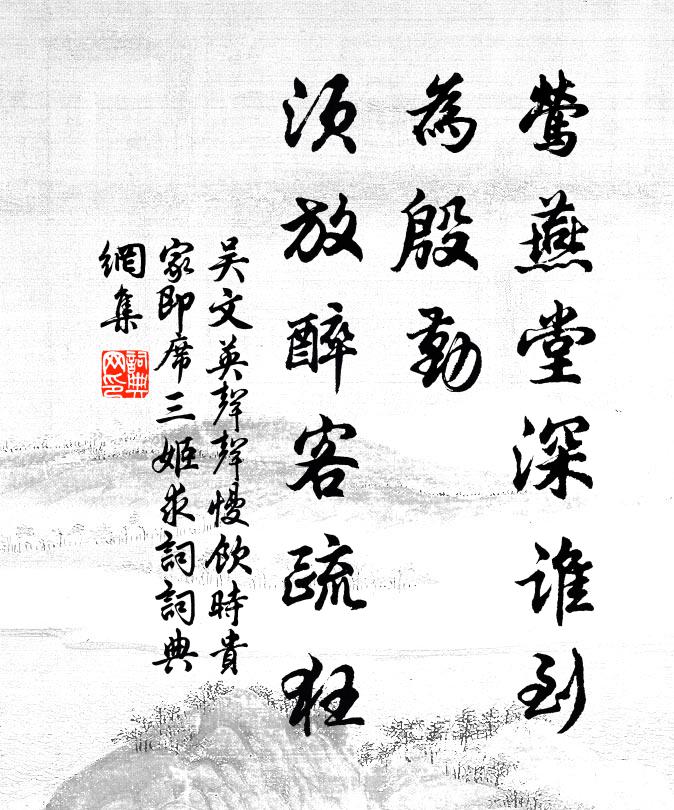 鶯燕堂深誰到
為殷勤
須放醉客疏狂
吴文英聲聲慢飲時貴
家即席三姬求詞詞典
網集
詞典
网印